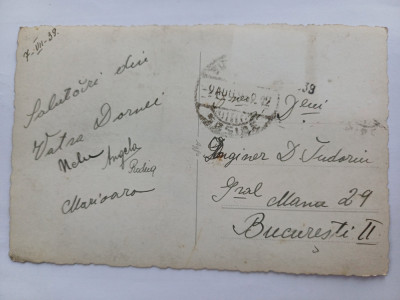 7-VII-39.
Salutări din
Vatra Dornei
Nelu Angela
Radu
Marioara
39
Inginer D. Tudorin
Gral Manu 29
București II